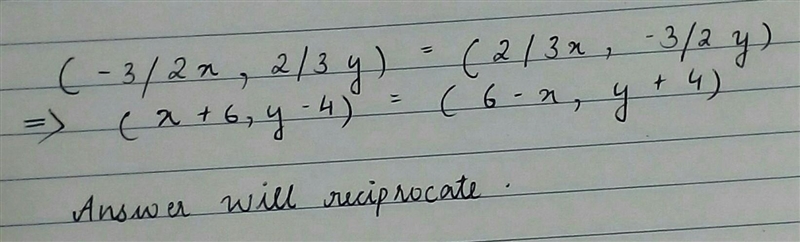 (-3/2x, 2/3y) = (2/3x, -3/2y)
=> (x+6, y-4) = (6-x, y+4)
Answer will reciprocate.